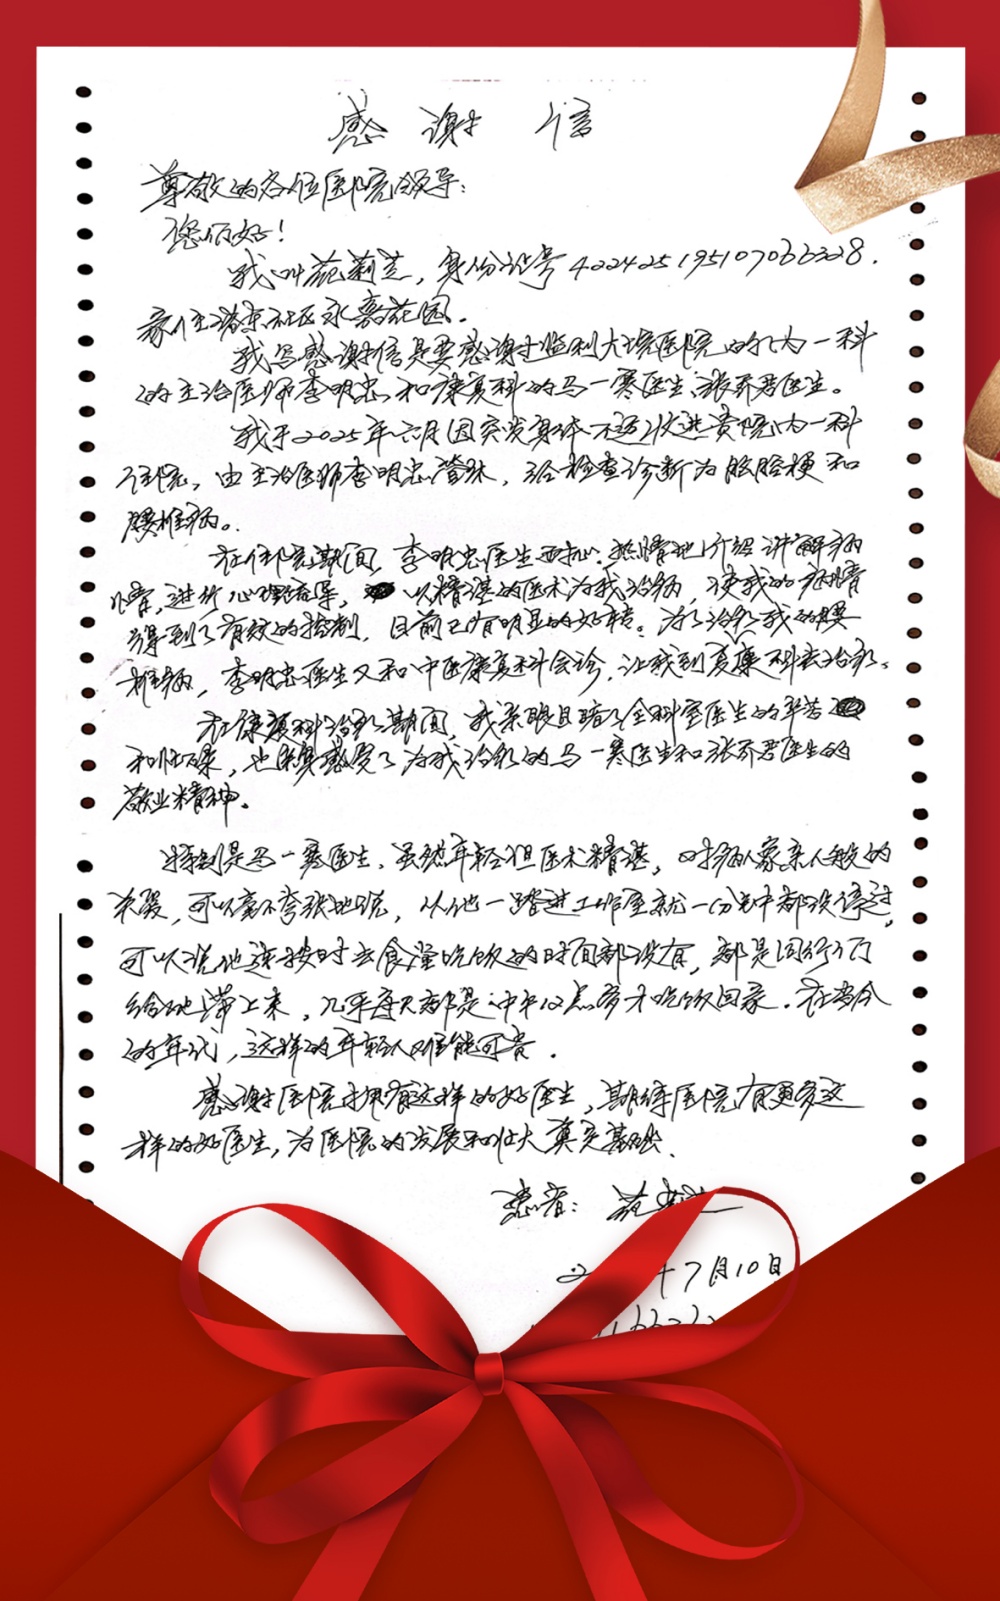 感谢信
尊敬的各位医院领导：
您们好！
我叫范莉芝，身份证号422425195107066328.
家住诸京社区永嘉花园.
我写感谢信是要感谢监利大垸医院的内一科
的主治医师李明忠和康复科的马一寒医生、张乔君医生。
我于2025年六月因突发身体不适收进贵院内一科
住院。由主治医师李明忠管床，经检查诊断为脑腔梗和
腰椎病。
在住院期间，李明忠医生，热情地介绍讲解病
情，进行心理疏导，以精湛的医术为我治病，使我的病情
得到了有效的控制，目前已有明显的好转。为了治疗我的腰
椎病，李明忠医生又和中医康复科会诊，让我到康复科去治疗。
在康复科治疗期间，我亲眼目睹了全科室医生的辛苦
和忙碌，也深感受了为我治疗的马一寒医生和张乔君医生的
敬业精神。
特别是马一寒医生，虽然年轻但医术精湛，对病人象亲人般的
关爱，可以毫不夸张地说，从他一踏进工作室就一分钟都没停过，
可以说他连按时去食堂吃饭的时间都没有，都是同行们
给他带上来，几乎每天都是中午12点多才吃饭回家.在当今
的年代，这样的年轻人难能可贵.
感谢医院拥有这样的好医生，期待医院有更多这
样的好医生，为医院的发展和壮大奠定基础.
患者：范莉芝
7月10日